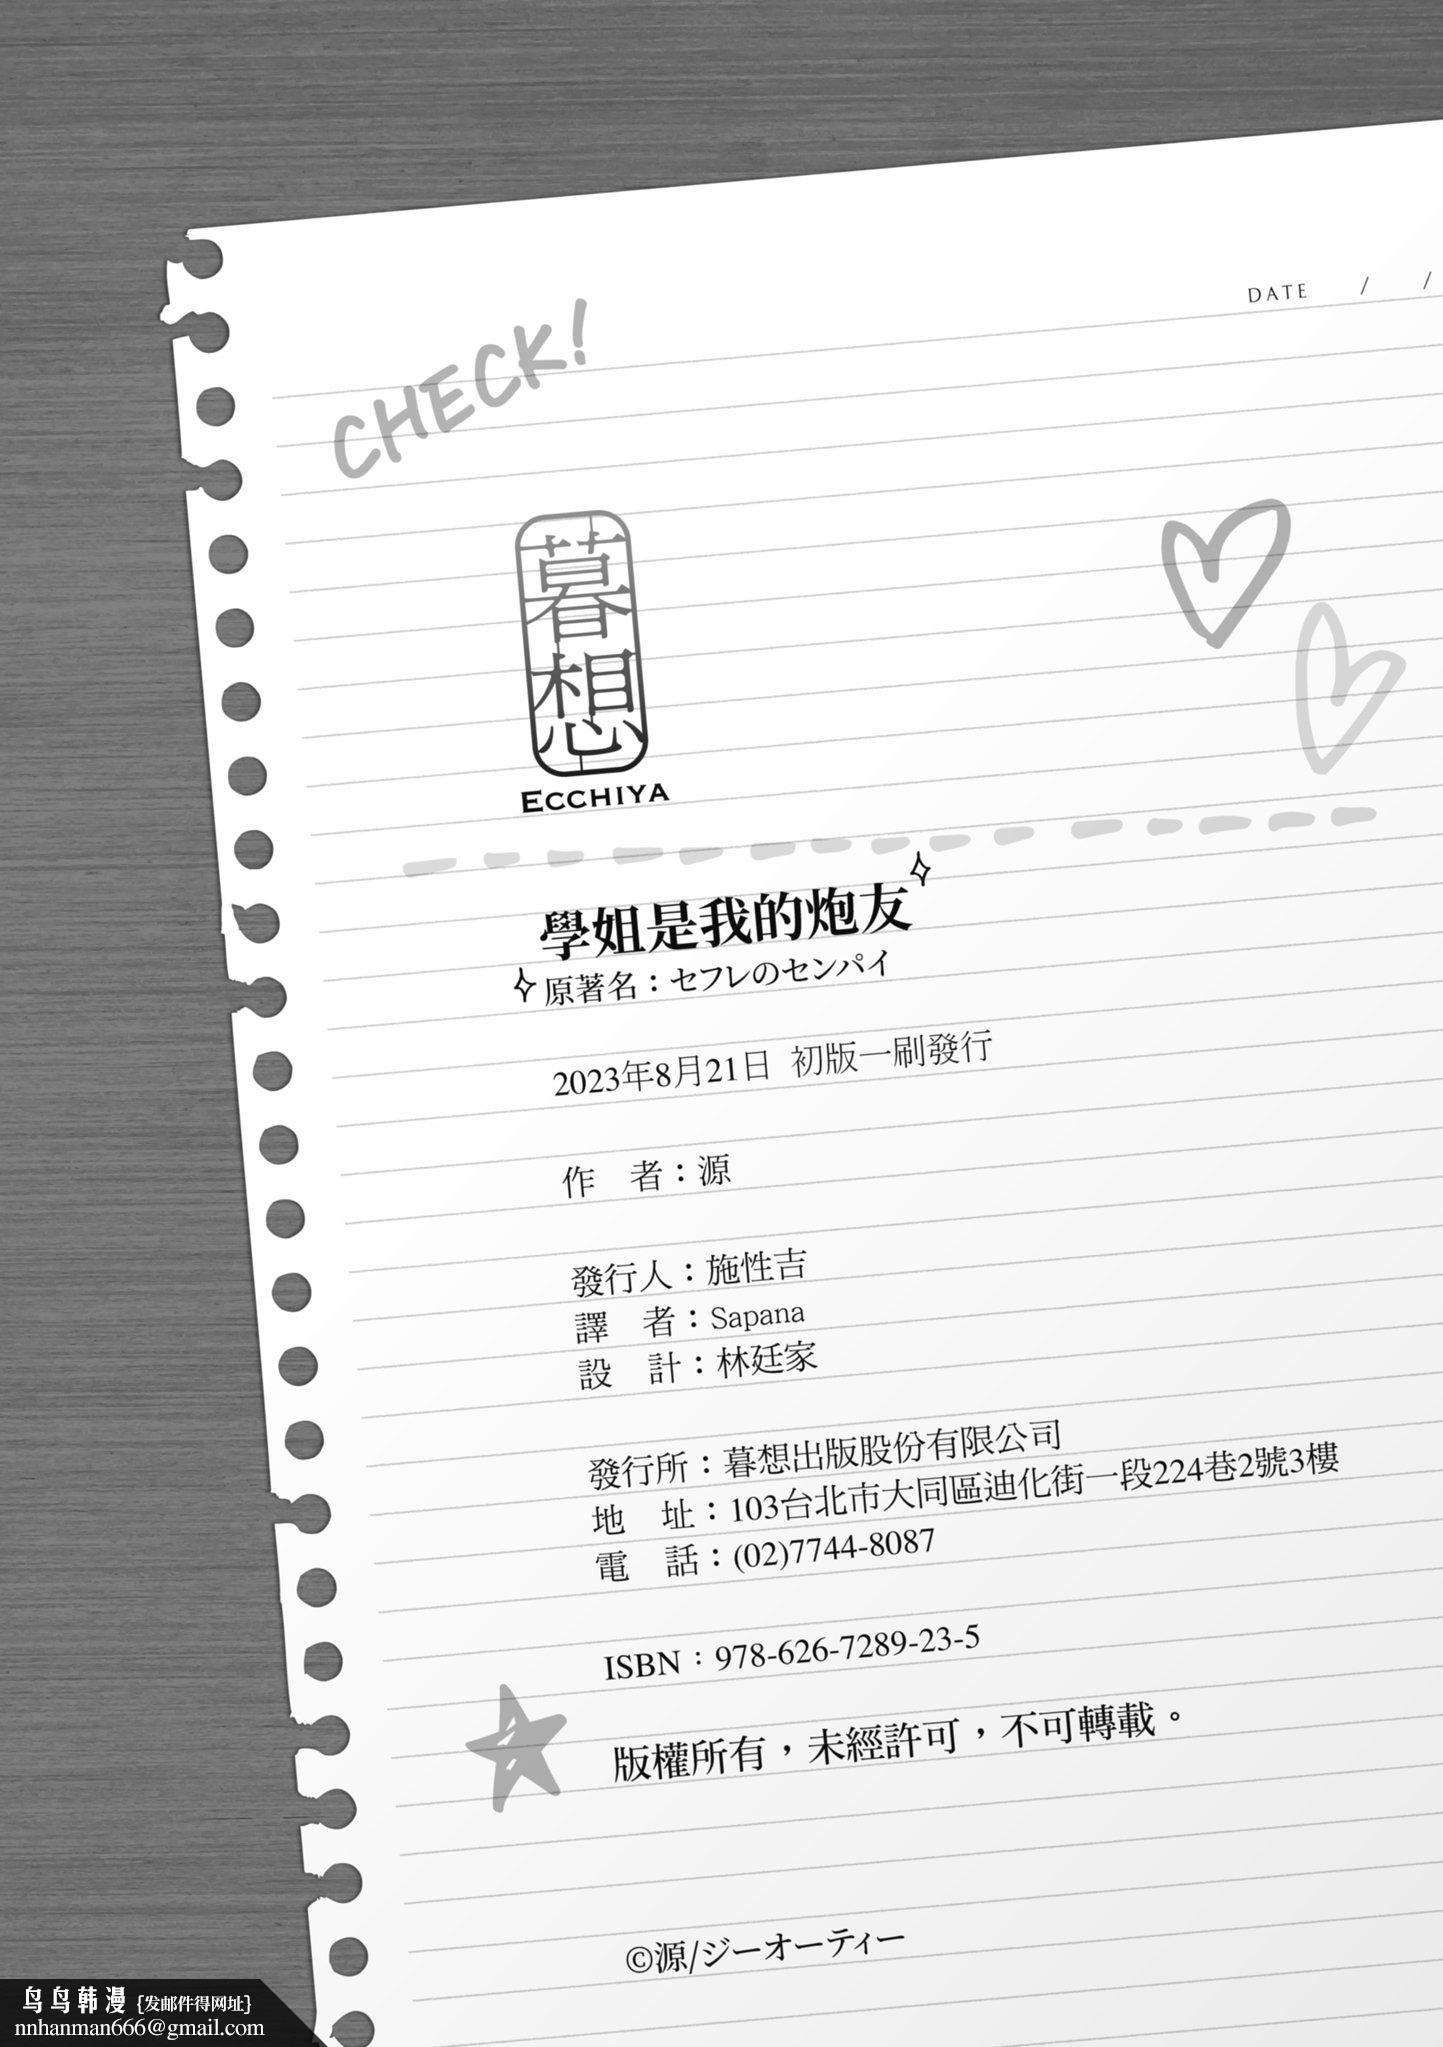 DATE / /
CHECK!
暮想
ECCHIYA
學姐是我的炮友
原著名：セフレのセンパイ
2023年8月21日 初版一刷發行
作 者：源
發行人：施性吉
譯 者：Sapana
設 計：林廷家
發行所：暮想出版股份有限公司
地 址：103台北市大同區迪化街一段224巷2號3樓
電 話：(02)7744-8087
ISBN：978-626-7289-23-5
版權所有，未經許可，不可轉載。
©源/ジーオーティー
鸟鸟韩漫 {发邮件得网址}
nnhanman666@gmail.com